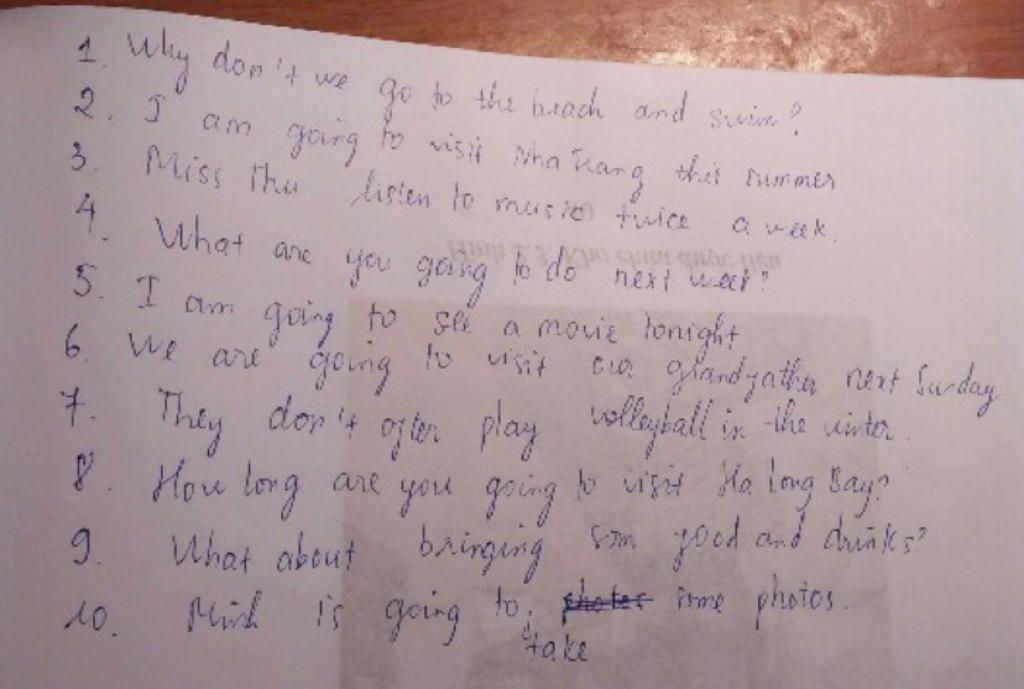 1. Why don't we go to the beach and swim?
2. I am going to visit Nha Trang this summer
3. Miss Thu listen to music twice a week.
4. What are you going to do next week?
5. I am going to see a movie tonight
6. We are going to visit our grandfather next Sunday
7. They don't often play volleyball in the winter.
8. How long are you going to visit Ha Long Bay?
9. What about bringing som food and drinks?
10. Minh is going to take some photos.